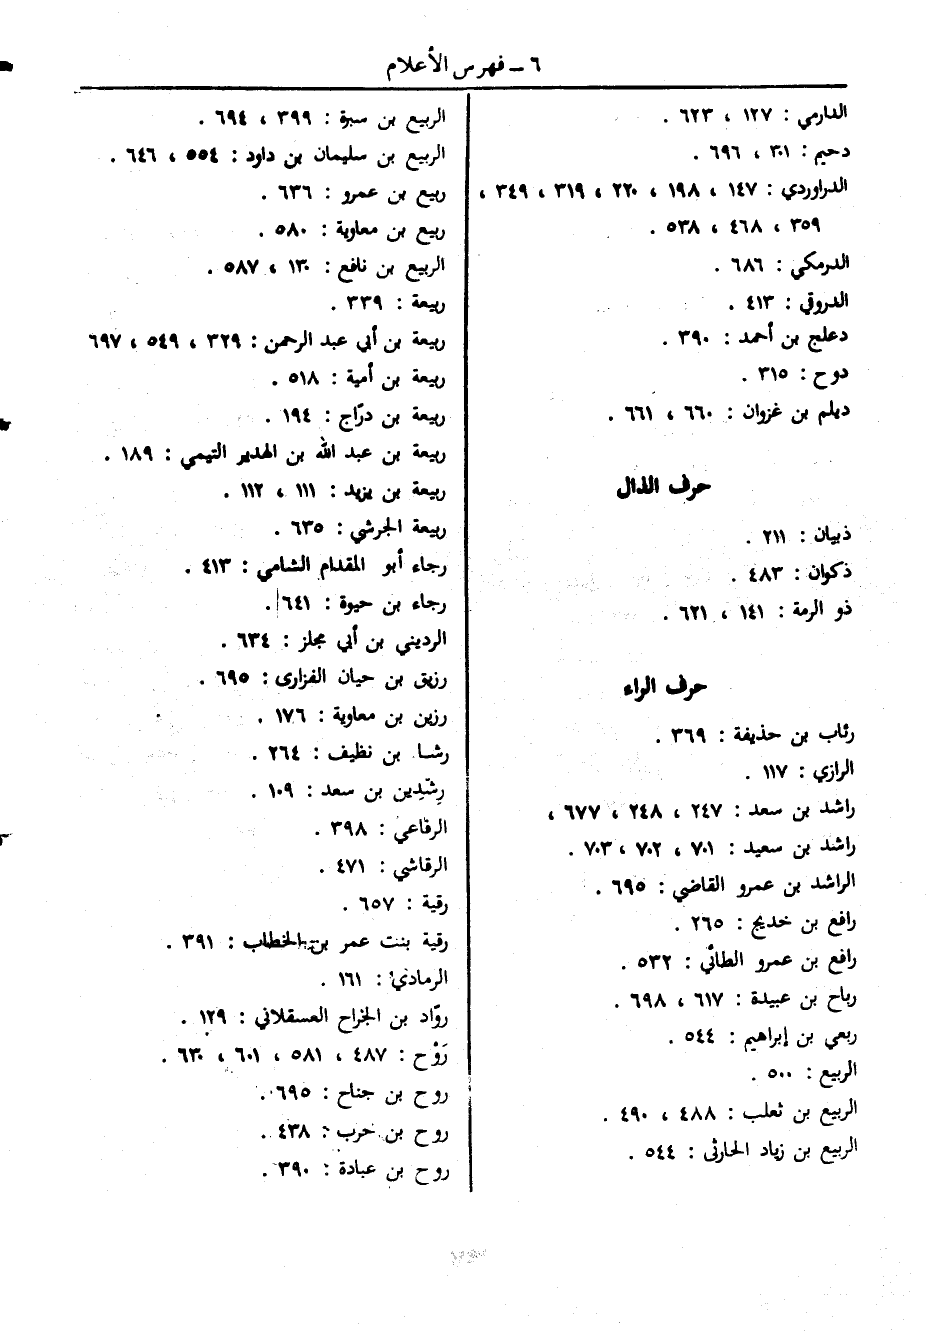 ٦ ــ فهرس الأعلام
الدارمي : ١٢٧ ، ٦٢٣ .
دحيم : ٣٠١ ، ٦٩٦ .
الدراوردي : ١٤٧ ، ١٩٨ ، ٢٢٠ ، ٣١٩ ، ٣٤٩ ،
٣٥٩ ، ٤٦٨ ، ٥٣٨ .
الدرمكي : ٦٨٦ .
الدروقي : ٤١٣ .
دعلج بن أحمد : ٣٩٠ .
دوح : ٣١٥ .
ديلم بن غزوان : ٦٦٠ ، ٦٦١ .
حرف الذال
ذبيان : ٢١١ .
ذكوان : ٤٨٣ .
ذو الرمة : ١٤١ ، ٦٢١ .
حرف الراء
رئاب بن حذيفة : ٣٦٩ .
الرازي : ١١٧ .
راشد بن سعد : ٢٤٧ ، ٢٤٨ ، ٦٧٧ ،
راشد بن سعيد : ٧٠١ ، ٧٠٢ ، ٧٠٣ .
الراشد بن عمرو القاضي : ٦٩٥ .
رافع بن خديج : ٢٦٥ .
رافع بن عمرو الطائي : ٥٣٢ .
رباح بن عبيدة : ٦١٧ ، ٦٩٨ .
ربعي بن إبراهيم : ٥٤٤ .
الربيع : ٥٠٠ .
الربيع بن ثعلب : ٤٨٨ ، ٤٩٠ .
الربيع بن زياد الحارثي : ٥٤٤ .
الربيع بن سبرة : ٣٩٩ ، ٦٩٤ .
الربيع بن سليمان بن داود : ٥٥٤ ، ٦٤٦ .
ربيع بن عمرو : ٦٣٦ .
ربيع بن معاوية : ٥٨٠ .
الربيع بن نافع : ١٣٠ ، ٥٨٧ .
ربيعة : ٣٣٩ .
ربيعة بن أبي عبد الرحمن : ٣٢٩ ، ٥٤٩ ، ٦٩٧
ربيعة بن أمية : ٥١٨ .
ربيعة بن درّاج : ١٩٤ .
ربيعة بن عبد الله بن الهدير التيمي : ١٨٩ .
ربيعة بن يزيد : ١١١ ، ١١٢ .
ربيعة الجرشي : ٦٣٥ .
رجاء أبو المقدام الشامي : ٤١٣ .
رجاء بن حيوة : ٦٤١ .
الرديني بن أبي مجلز : ٦٣٤ .
رزيق بن حيان الفزارى : ٦٩٥ .
رزين بن معاوية : ١٧٦ .
رشا بن نظيف : ٢٦٤ .
رِشّدِين بن سعد : ١٠٩ .
الرفاعي : ٣٩٨ .
الرقاشي : ٤٧١ .
رقية : ٦٥٧ .
رقية بنت عمر بن الخطاب : ٣٩١ .
الرمادي : ١٦١ .
روّاد بن الجراح العسقلاني : ١٢٩ .
رَوْح : ٤٨٧ ، ٥٨١ ، ٦٠١ ، ٦٣٠ .
روح بن جناح : ٦٩٥ .
روح بن حرب : ٤٣٨ .
روح بن عبادة : ٣٩٠ .